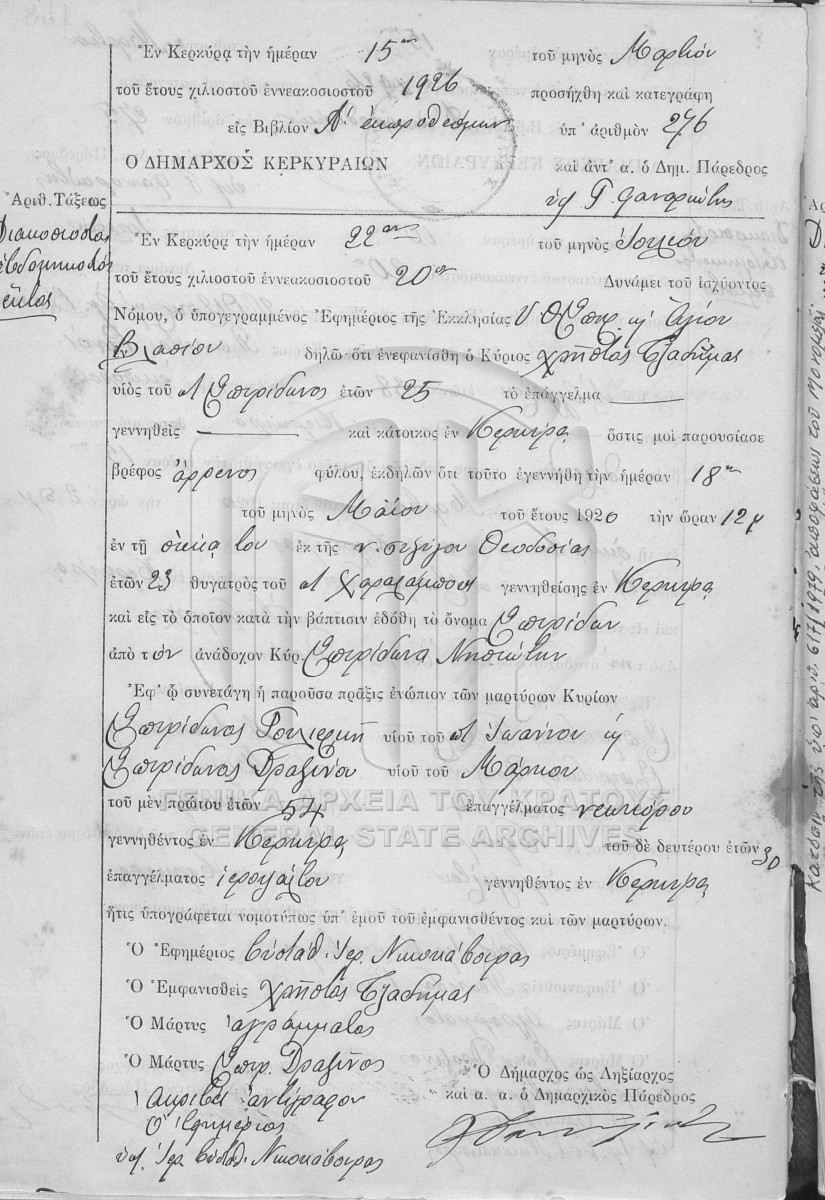 Ἐν Κερκύρᾳ τὴν ἡμέραν 15ην τοῦ μηνὸς Μαρτίου
τοῦ ἔτους χιλιοστοῦ ἐννεακοσιοστοῦ 1926 προσήχθη καὶ κατεγράφη
εἰς Βιβλίον Α' ἐκπροθέσμων ὑπ' ἀριθμὸν 276
Ο ΔΗΜΑΡΧΟΣ ΚΕΡΚΥΡΑΙΩΝ καὶ ἀντ' α. ὁ Δημ. Πάρεδρος
Γ. Φαναριώτης
Ἀριθ. Τάξεως
Διακοσιοστὸς
ἑβδομηκοστὸς
ἕκτος
Ἐν Κερκύρᾳ τὴν ἡμέραν 22αν τοῦ μηνὸς Ἰουλίου
τοῦ ἔτους χιλιοστοῦ ἐννεακοσιοστοῦ 20οῦ Δυνάμει τοῦ ἰσχύοντος
Νόμου, ὁ ὑπογεγραμμένος Ἐφημέριος τῆς Ἐκκλησίας Υ. Θ. Σπηλ. κ Ἁγίου
Βλασίου δηλῶ ὅτι ἐνεφανίσθη ὁ Κύριος Χρῆστος Τζαδήμας
υἱὸς τοῦ Σπυρίδωνος ἐτῶν 25 τὸ ἐπάγγελμα
γεννηθεὶς καὶ κάτοικος ἐν Κέρκυρᾳ ὅστις μοὶ παρουσίασε
βρέφος ἄρρενος φύλου, ἐκδηλῶν ὅτι τοῦτο ἐγεννήθη τὴν ἡμέραν 18ην
τοῦ μηνὸς Μαΐου τοῦ ἔτους 1920 τὴν ὥραν 12
ἐν τῇ οἰκίᾳ του ἐκ τῆς ν. συζύγου Θεοδοσίας
ἐτῶν 23 θυγατρὸς τοῦ Χαραλάμπους γεννηθείσης ἐν Κέρκυρᾳ
καὶ εἰς τὸ ὁποῖον κατὰ τὴν βάπτισιν ἐδόθη τὸ ὄνομα Σπυρίδων
ἀπὸ τὸν ἀνάδοχον Κύρ. Σπυρίδωνα Νησιώτην
Ἐφ' ᾧ συνετάγη ἡ παροῦσα πρᾶξις ἐνώπιον τῶν μαρτύρων Κυρίων
Σπυρίδωνος υἱοῦ τοῦ Ἰωάννου κ
Σπυρίδωνος Δραζίνου υἱοῦ τοῦ Μάρκου
τοῦ μὲν πρώτου ἐτῶν 54 ἐπαγγέλματος νεωκόρου
γεννηθέντος ἐν Κέρκυρᾳ τοῦ δὲ δευτέρου ἐτῶν 30
ἐπαγγέλματος ἱεροψάλτου γεννηθέντος ἐν Κέρκυρᾳ
ἥτις ὑπογράφεται νομοτύπως ὑπ' ἐμοῦ τοῦ ἐμφανισθέντος καὶ τῶν μαρτύρων.
Ὁ Ἐφημέριος Εὐστάθ. Ἱερ. Νικοκάβουρας
Ὁ Ἐμφανισθεὶς Χρῆστος Τζαδήμας
Ὁ Μάρτυς ἀγράμματος
Ὁ Μάρτυς Σπυρ. Δραζίνος
Ὁ Δήμαρχος ὡς Ληξίαρχος
καὶ α. α. ὁ Δημαρχικὸς Πάρεδρος
Ἀκριβὲς ἀντίγραφον
Ὁ Ἐφημέριος
ὑπ. Ἱερ. Εὐστάθ. Νικοκάβουρας
ΓΕΝΙΚΑ ΑΡΧΕΙΑ ΤΟΥ ΚΡΑΤΟΥΣ
GENERAL STATE ARCHIVES
Κατόπιν τῆς ὑπ' ἀριθ. 617/1979 ἀποφάσεως τοῦ Μονομελοῦς